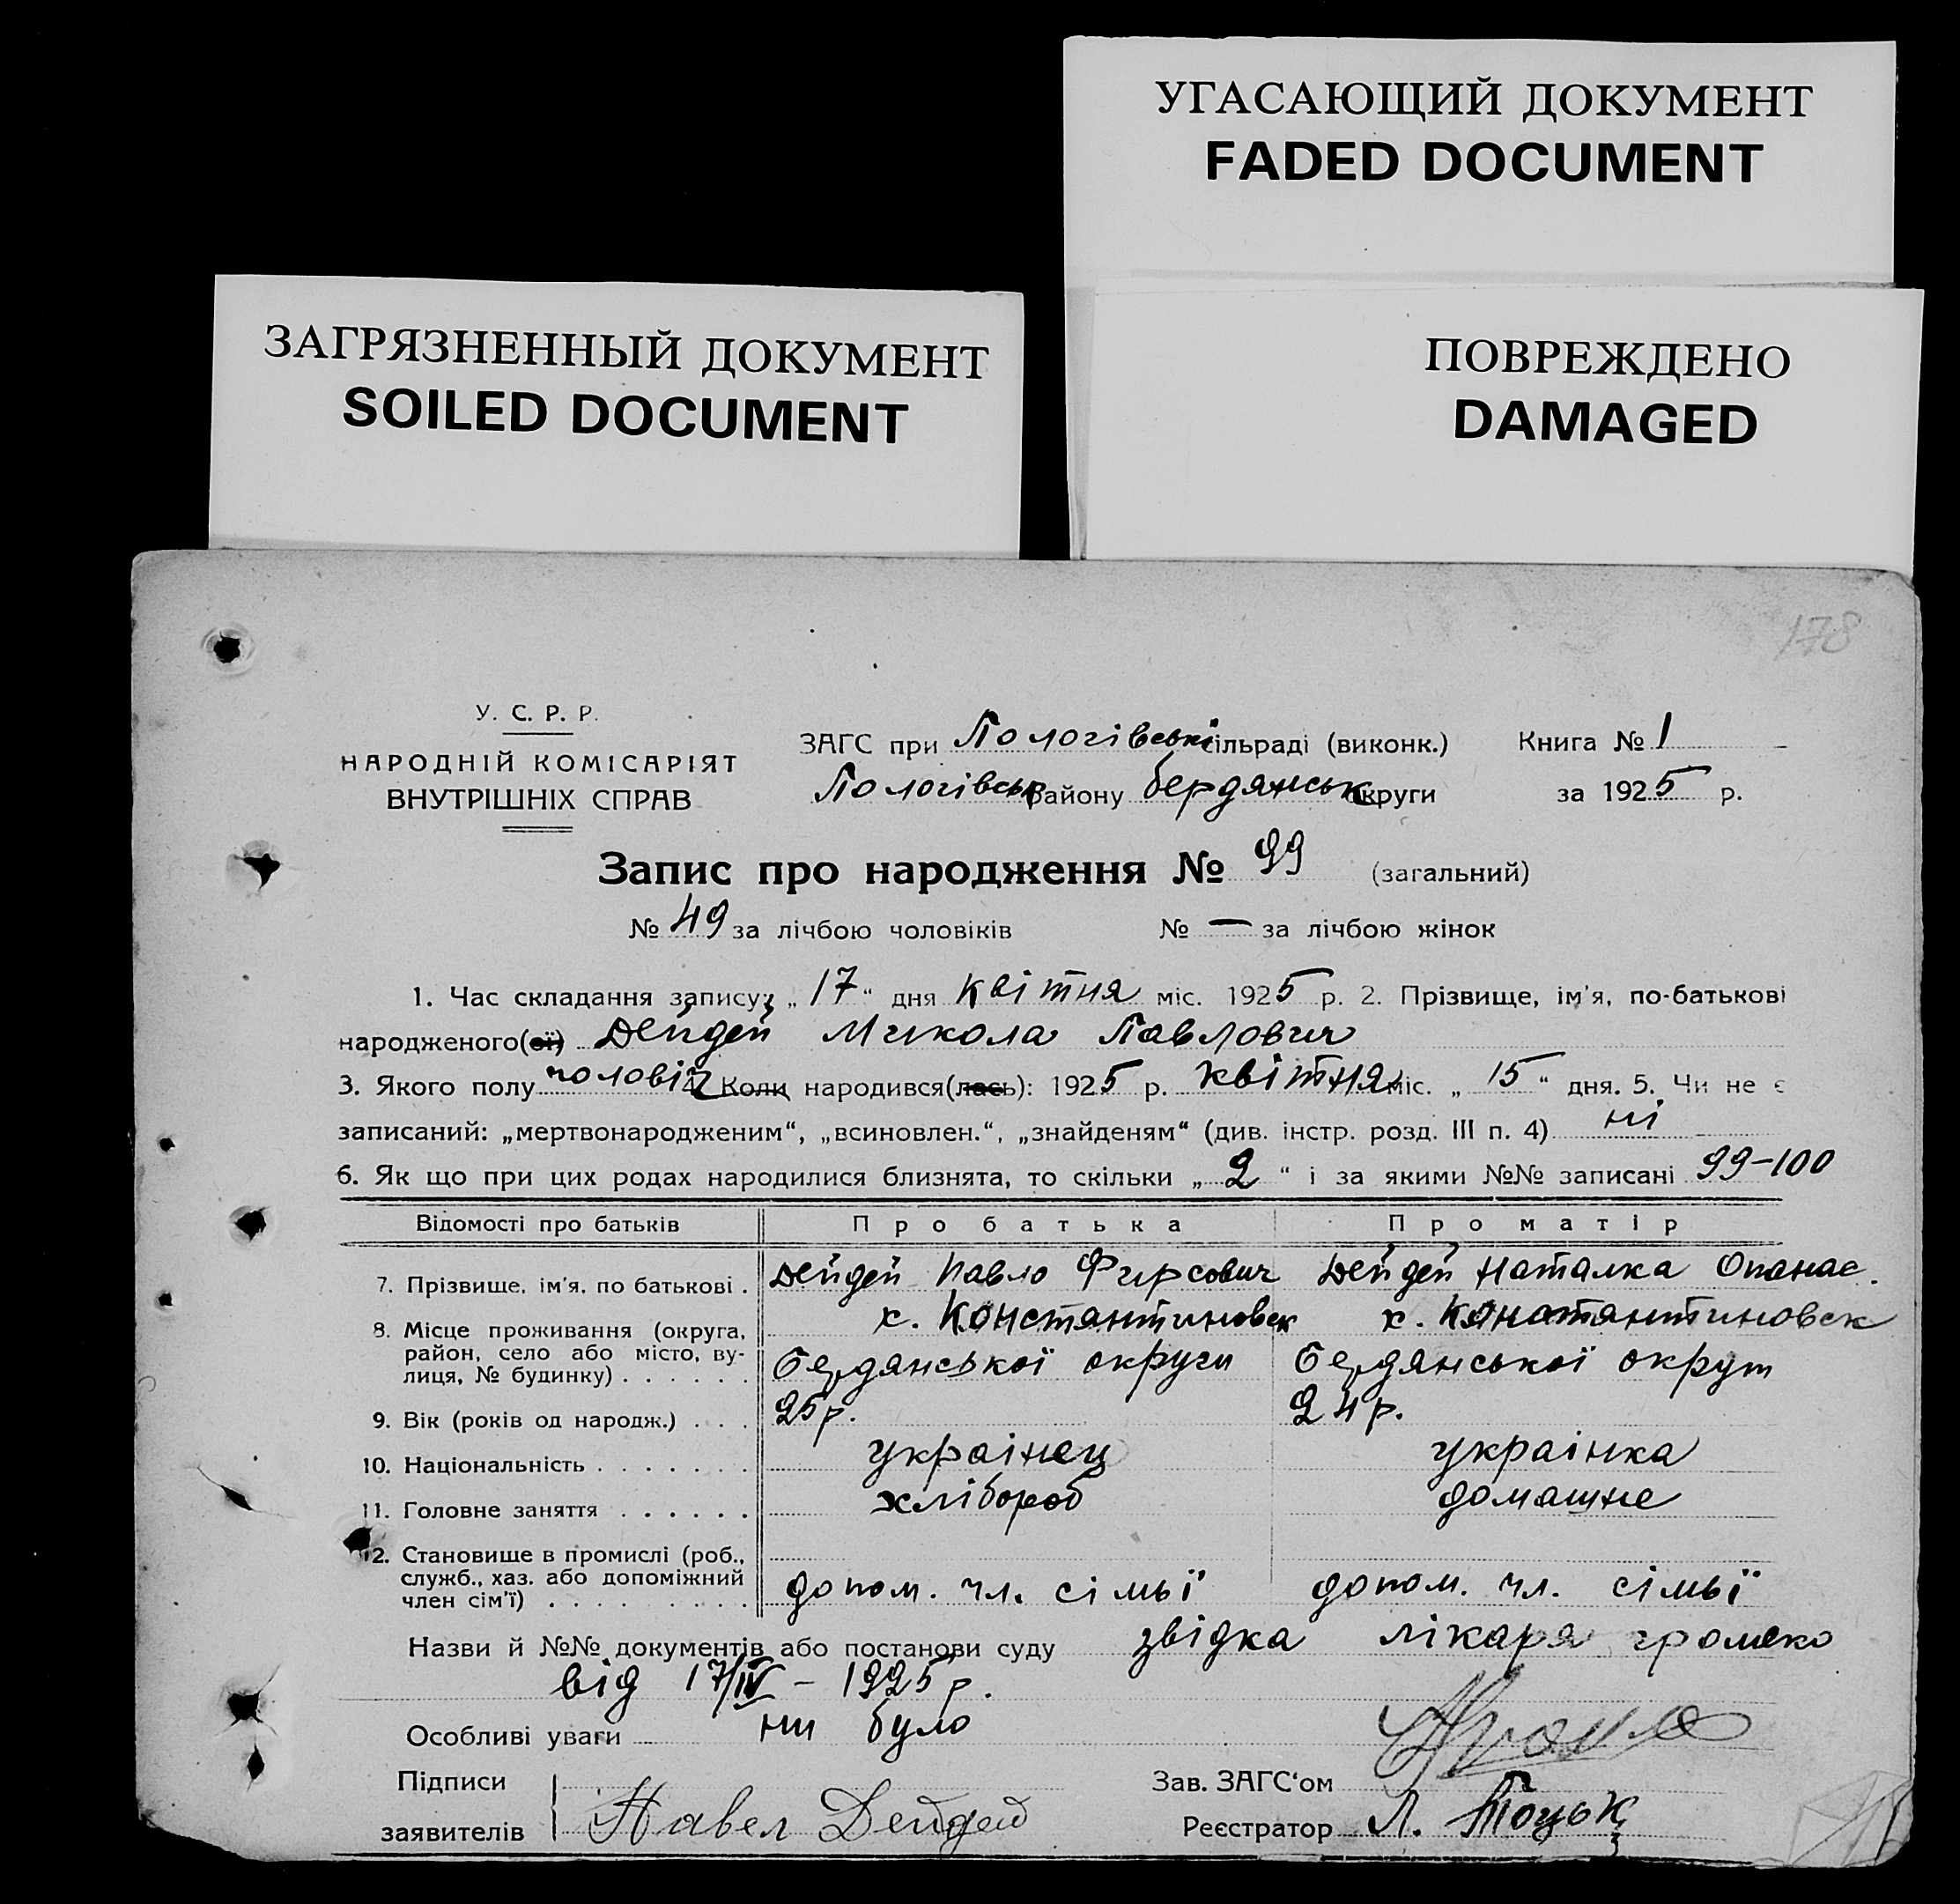 УГАСАЮЩИЙ ДОКУМЕНТ
FADED DOCUMENT
ЗАГРЯЗНЕННЫЙ ДОКУМЕНТ
SOILED DOCUMENT
ПОВРЕЖДЕНО
DAMAGED
178
У. С. Р. Р.
НАРОДНІЙ КОМІСАРІЯТ
ВНУТРІШНІХ СПРАВ
ЗАГС при Пологівські сільраді (виконк.) Книга № 1
Пологівськ району бердянськ округи за 1925 р.
Запис про народження № 99 (загальний)
№ 49 за лічбою чоловіків № — за лічбою жінок
1. Час складання запису: „17“ дня квітня міс. 1925 р. 2. Прізвище, ім'я, по-батькові
народженого(ої) Дейдей Микола Павлович
3. Якого полу чоловіч 4. Коли народився(лась): 1925 р. квітня міс. „15“ дня. 5. Чи не є
записаний: „мертвонародженим“, „всиновлен.“, „знайденям“ (див. інстр. розд. III п. 4) ні
6. Як що при цих родах народилися близнята, то скільки „2“ і за якими №№ записані 99-100
Відомості про батьків Про батька Про матір
7. Прізвище, ім'я, по батькові . Дейдей Павло Фирсович Дейдей Наталка Опанас.
8. Місце проживання (округа, х. Константиновск х. Константиновск
район, село або місто, ву-
лиця, № будинку) . . . . . . Бердянської округи Бердянської округи
9. Вік (років од народж.) . . . 25 р. 24 р.
10. Національність . . . . . . . українец українка
11. Головне заняття . . . . . . хлібороб домашнє
12. Становище в промислі (роб.,
служб., хаз. або допоміжний
член сім'ї) . . . . . . . . . допом. чл. сімьї допом. чл. сімьї
Назви й №№ документів або постанови суду звідка лікаря громеко
від 17/IV – 1925 р.
Особливі уваги ни було
Підписи Зав. ЗАГС'ом
заявителів Павел Дейдей Реєстратор Л.